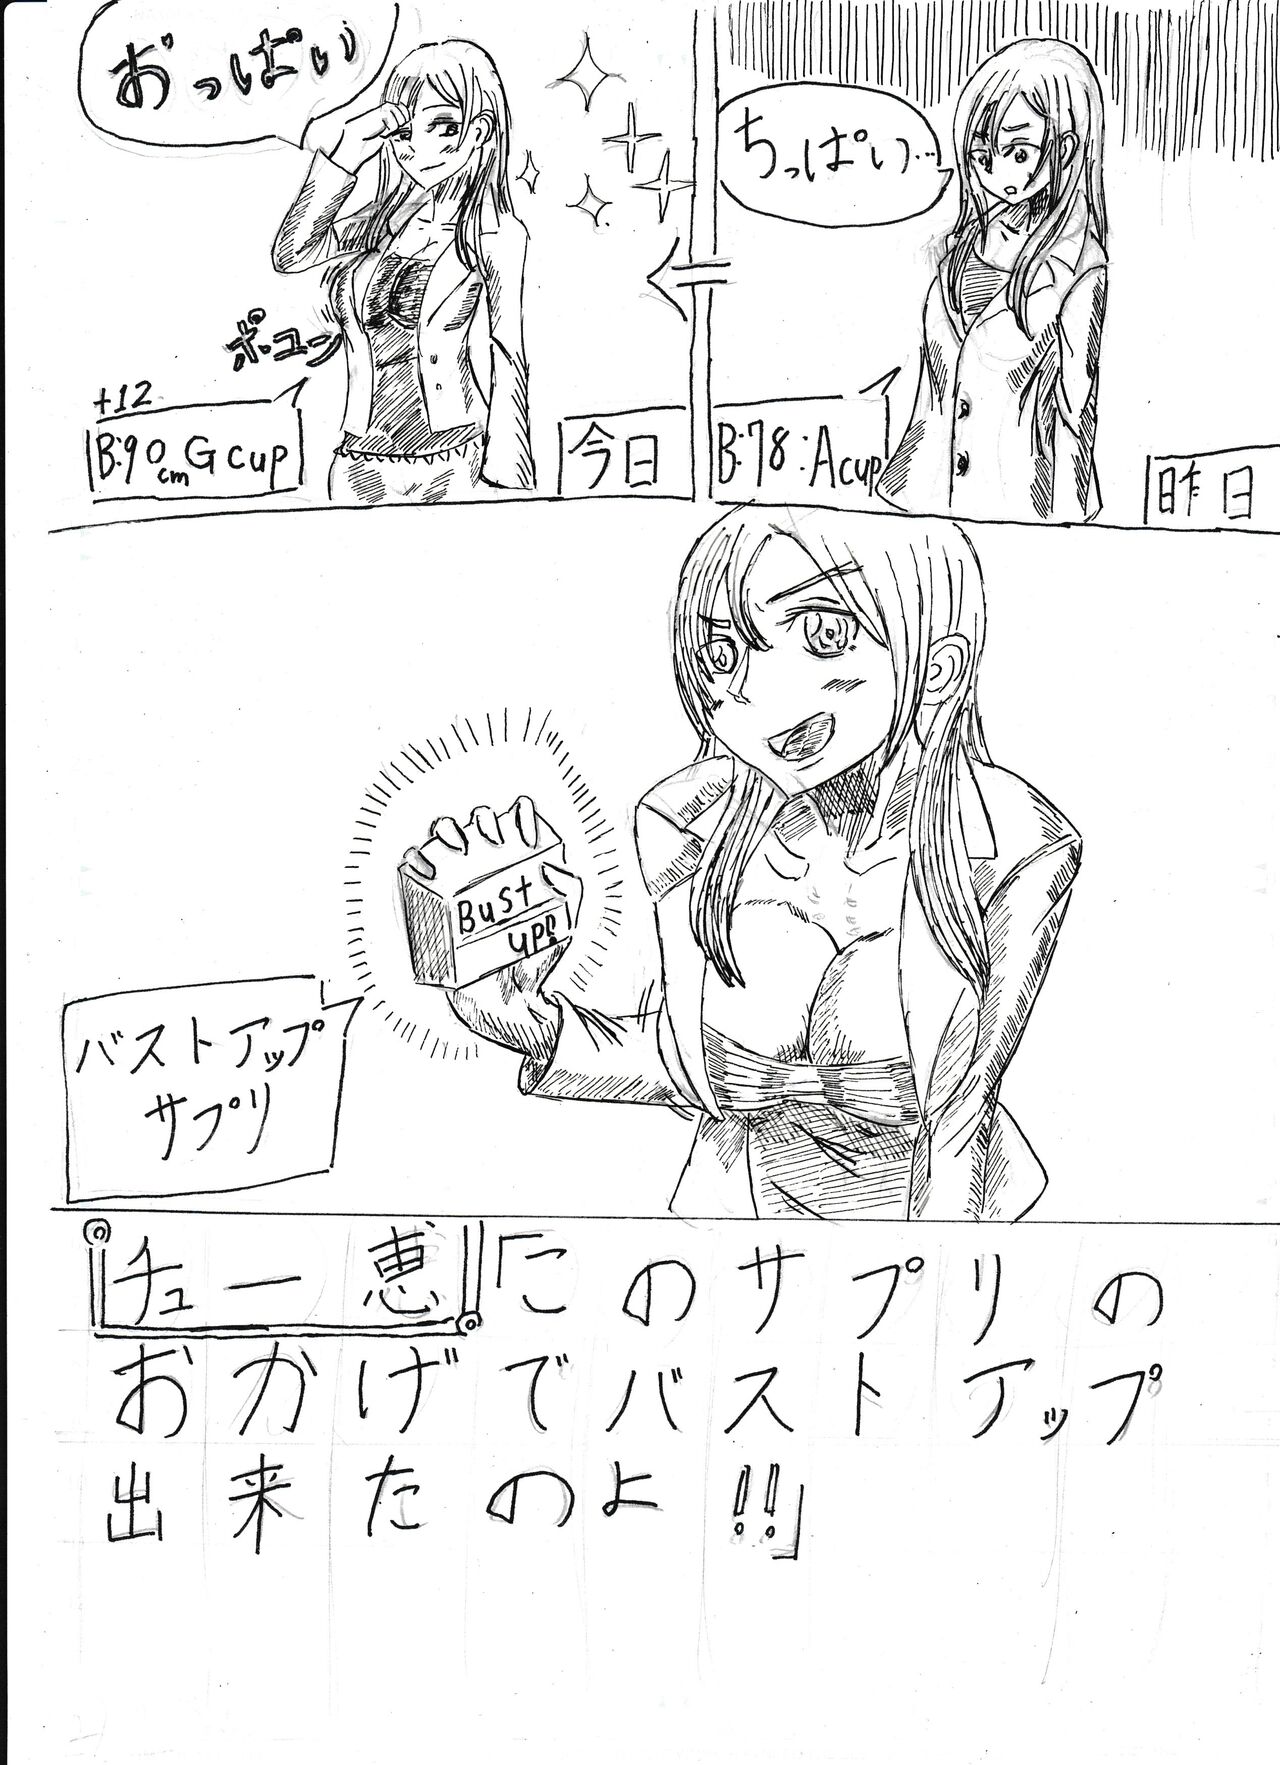 ちっぱい…
B:78:Acup
昨日
おっぱい
ポユン
+12
B:90cm Gcup
今日
Bust
up!!
バストアップ
サプリ
チュー恵「このサプリの
おかげでバストアップ
出来たのよ!!」